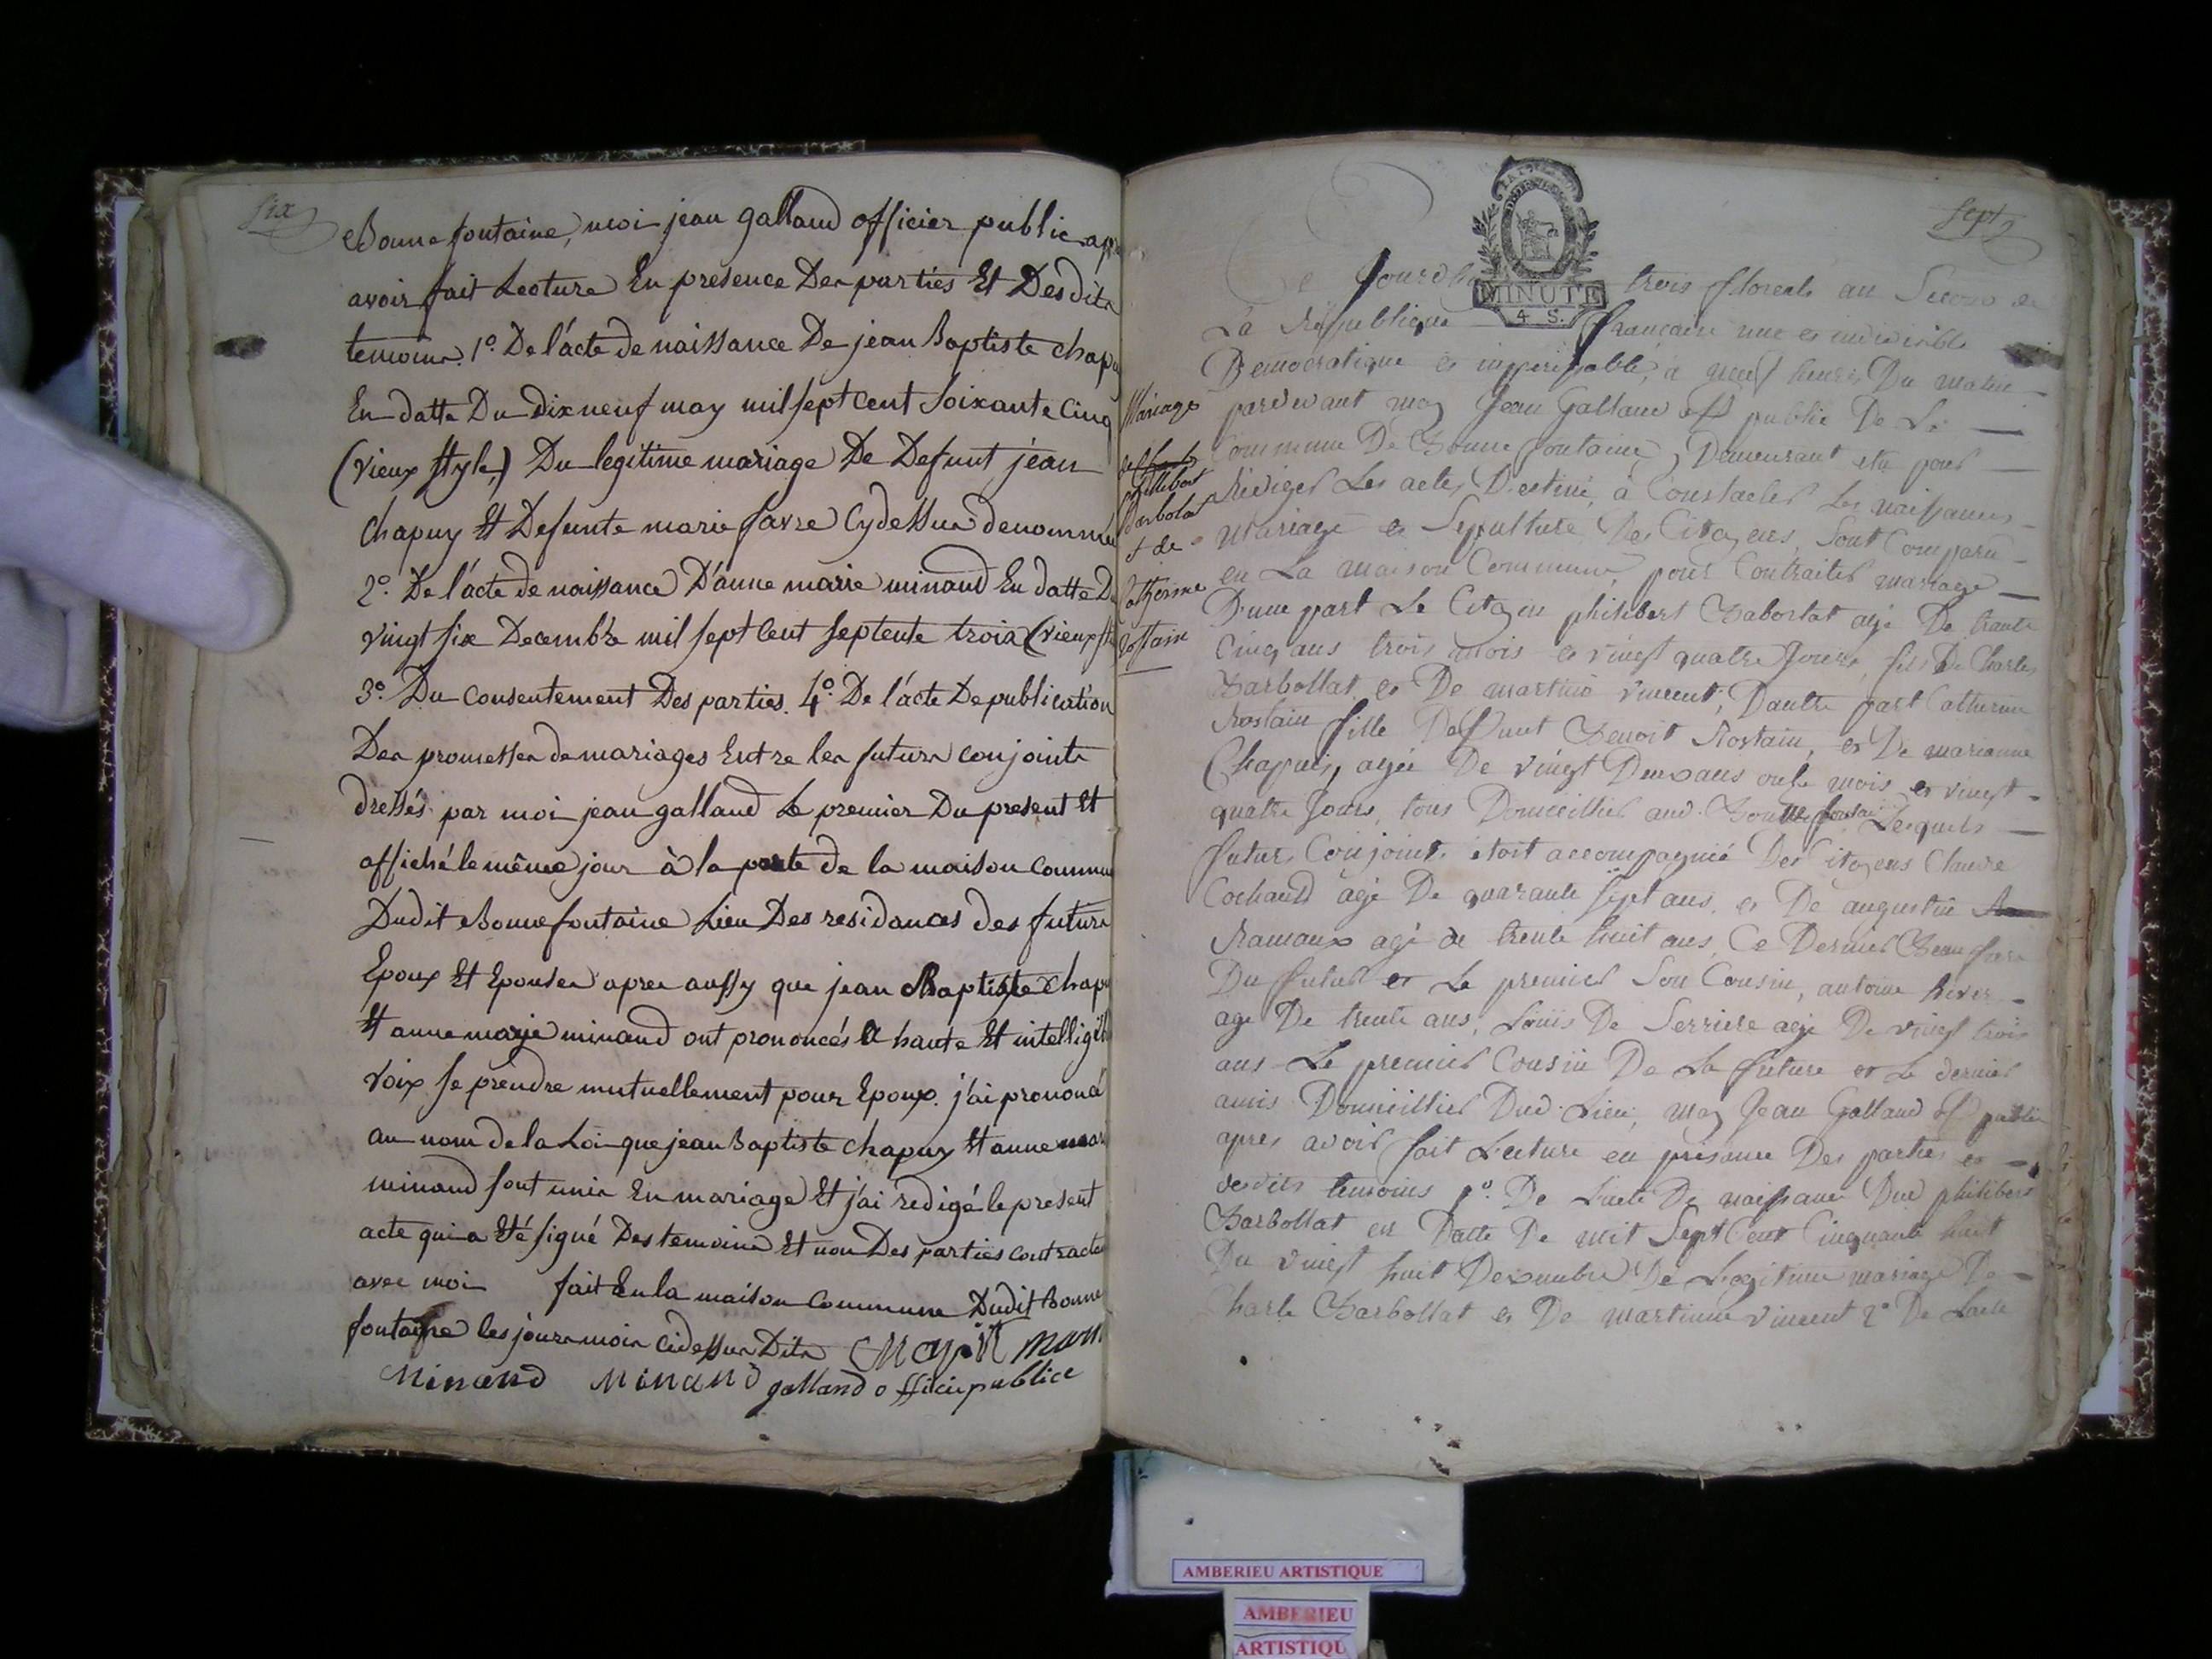 six
Bonnefontaine, moi jean galland officier public apr
avoir fait Lecture En presence Des parties Et Desdits
temoins 1º. De l'acte de naissance De jean Baptiste chapu
En datte Du dix neuf may mil sept cent soixante Cinq
(vieux style,) Du legitime mariage De Defunt jean
Chapuy Et Defunte marie favre Cy dessus denommé
2º. De l'acte de naissance D'anne marie minand En datte D
vingt six Decembre mil sept cent septente trois (vieux st
3º. Du consentement Des parties. 4º. De l'acte De publication
Des promesses de mariages Entre les futurs conjoints
dressés par moi jean galland Le premier Du present Et
affiché le même jour à la porte de la maison commu
Dudit Bonnefontaine Lieu Des residances des futurs
Epoux Et Epouses apres aussy que jean Baptiste chapu
Et anne marie minand ont prononcés a haute Et intelligib
voix se prendre mutuellement pour Epoux. j'ai prononcé
au nom de la Loi que jean Baptiste chapuy Et anne mari
minand sont unis En mariage Et j'ai redigé le present
acte qui a Eté signé Des temoins Et non Des parties contracte
avec moi fait En la maison Commune Dudit Bonne
fontaine les jours mois cidessus Dits
Minand Minand galland officie publice
sept
MINUTE
4 S.
Ce Jourdh trois floreals an Second de
La Republique francaise une et indivisible
Democratique et imperissable, a neuf heures Du matin
pardevant moy Jean Galland off public De La
Commune De Bonnefontaine, Demeurant elu pour
Rediger Les actes Destiné à Constater Les naissances
Mariage et Sepulture Des Citoyens, Sont Comparu
en La maison Commune, pour Contracter mariage
D'une part Le Citoyen philibert Babortat agé De trante
Cinq ans trois mois et vingt quatre Jours, fils De Charles
Barbollat et De martine vincent, D'autre part Catherine
Rostain fille Deffunt Benoit Rostain, et De marianne
Chapuis, agée De vingt Deux ans onse mois et vingt
quatre Jours, tous Domicillies aud. Bonnefontaine Lesquels
futurs Conjoints etoit accompagnié Des Citoyens Claude
Cochand agé De quarante sept ans, et De augustin
Ramaux agé de trente huit ans, Ce Dernier Beau frere
Du futur et Le premier Son Cousin, antoine
agé De trente ans, Louis De Serriere agé De vingt trois
ans Le premier Cousin De La future et Le dernier
amis Domicillies Dud. Lieu, moy Jean Galland off public
apres avoir fait Lecture en presence Des parties et
desdits temoins 1º. De L'acte De naissance Dud philibert
Barbollat en Datte De mil Sept Cent Cinquante huit
Du vingt huit Decembre De Legitime mariage De
Charle Barbollat et De martine vincent 2º De Lacte
Mariage
philibert
Barbolat
+ de
Catherine
Rostain
AMBERIEU ARTISTIQUE
AMBERIEU
ARTISTIQU